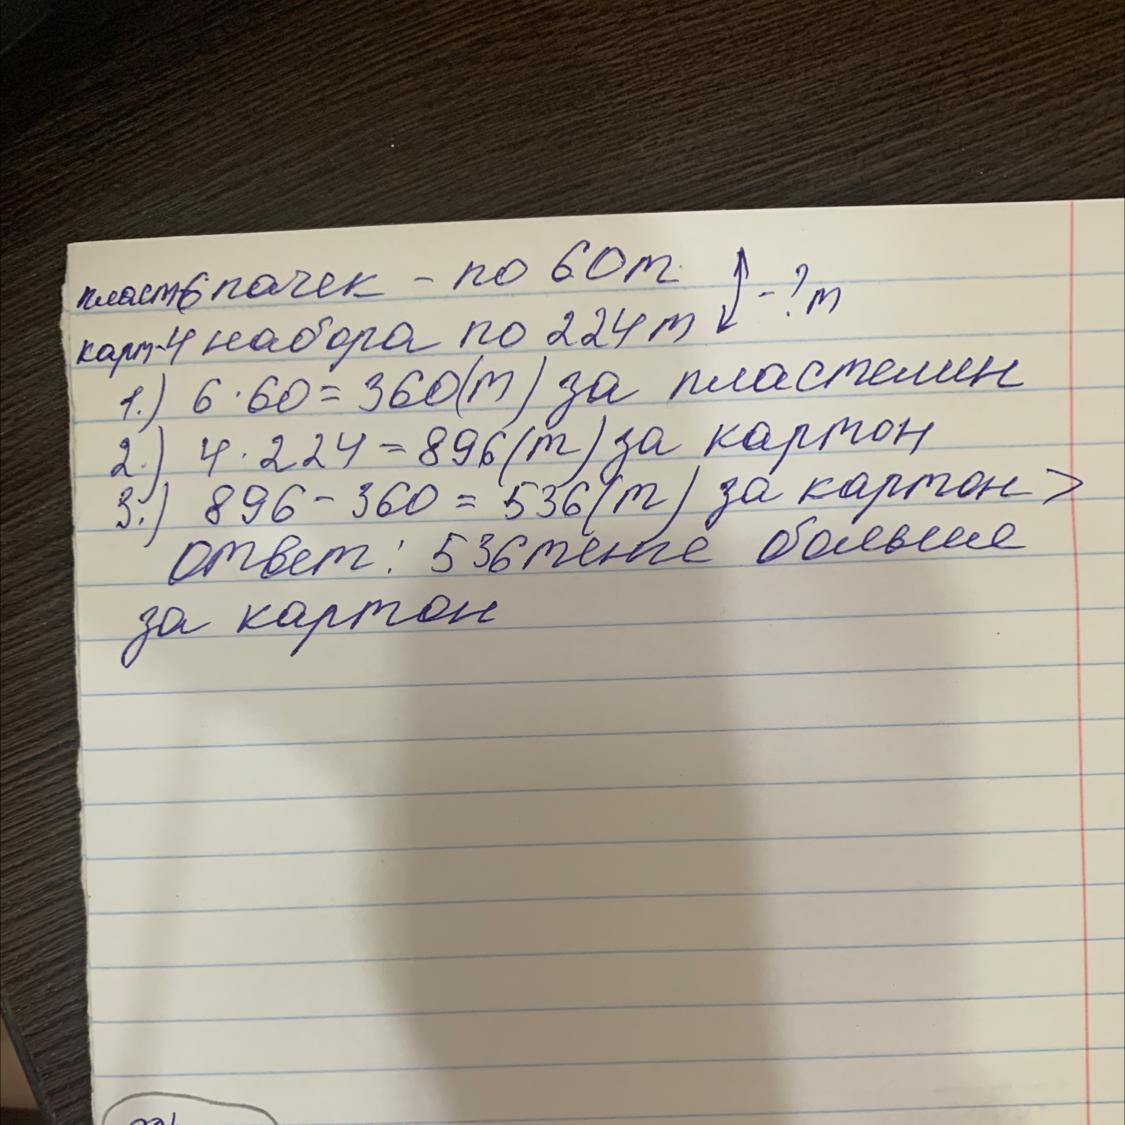 пласт-6 пачек - по 60 т.
карт-4 набора по 224 т - ? т
1.) 6·60=360(т) за пластелин
2.) 4·224=896(т) за картон
3.) 896-360=536(т) за картон >
Ответ: 536 тенге больше
за картон